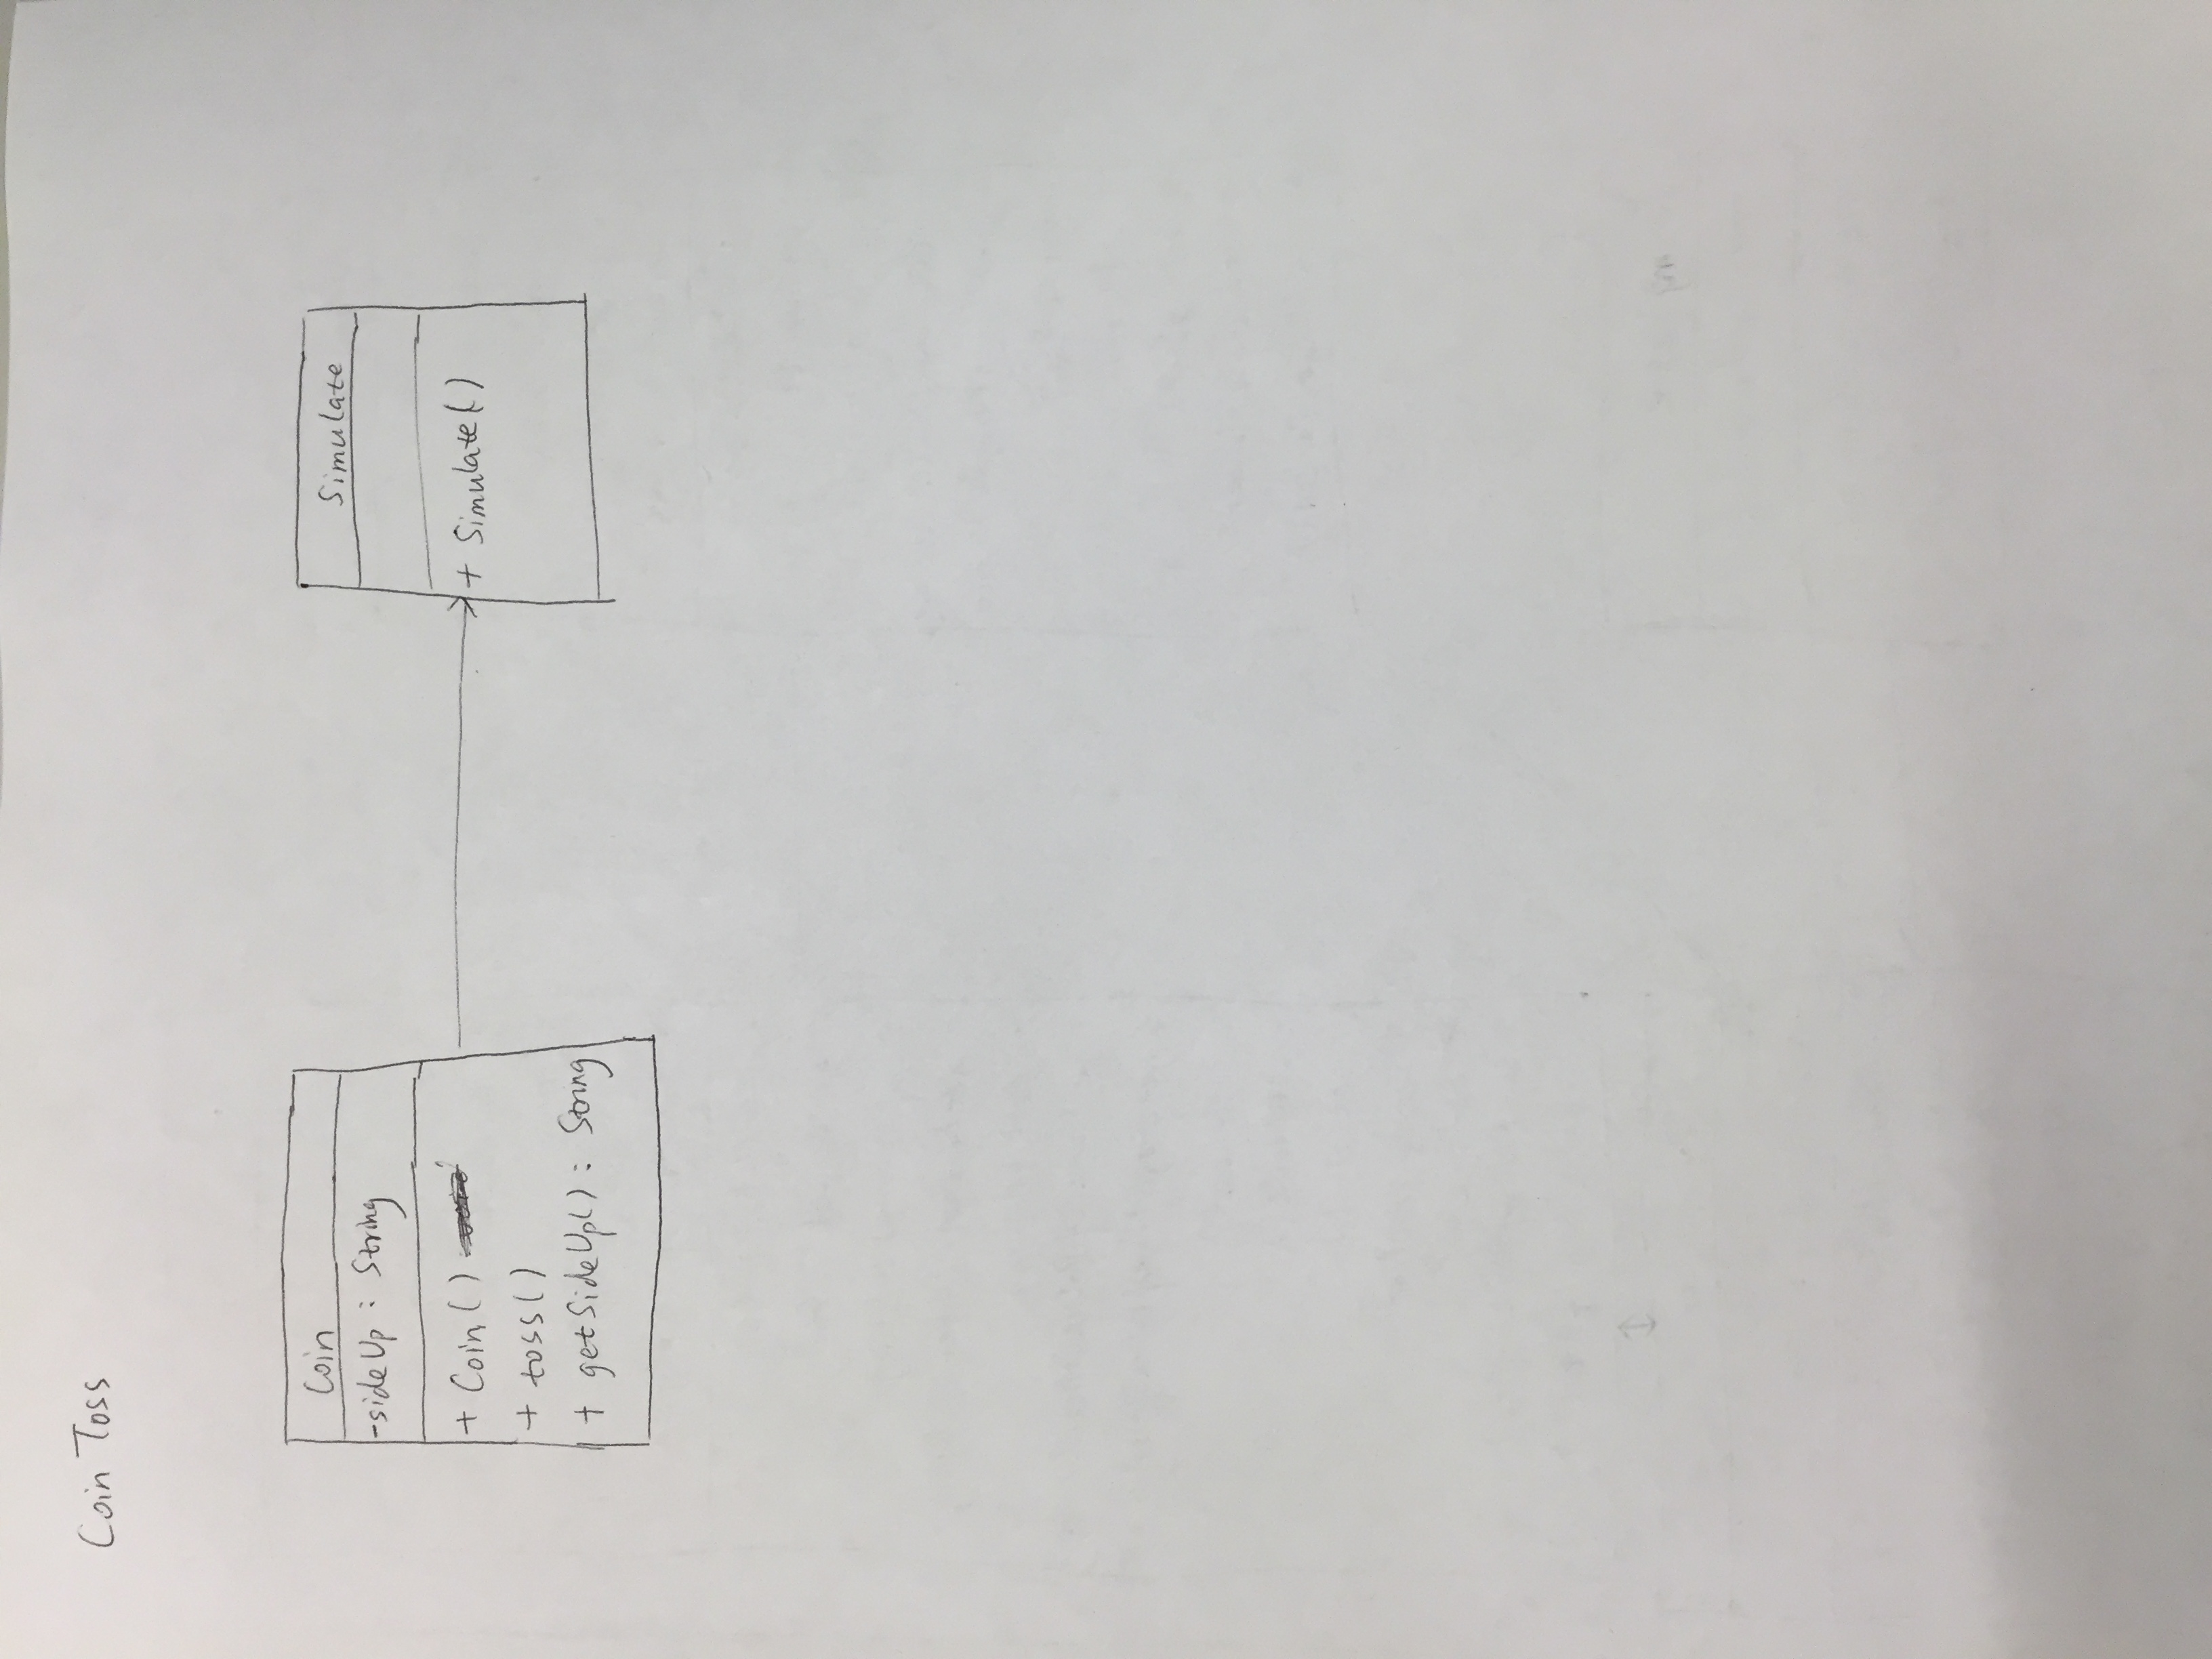 Coin Toss
Coin
-sideUp : String
+ Coin()
+ toss()
+ getSideUp() : String
Simulate
+ Simulate()